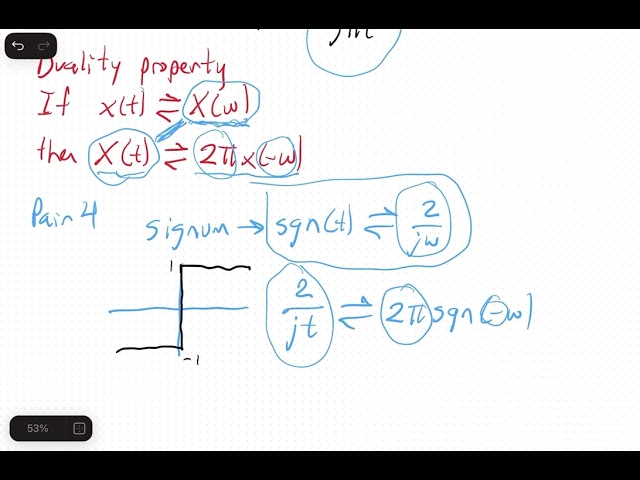 jπt
Duality property
If x(t) ⇌ X(ω)
then X(t) ⇌ 2π x(-ω)
Pair 4 signum → sgn(t) ⇌ 2/jω
1
2/jt ⇌ 2π sgn(-ω)
-1
53%